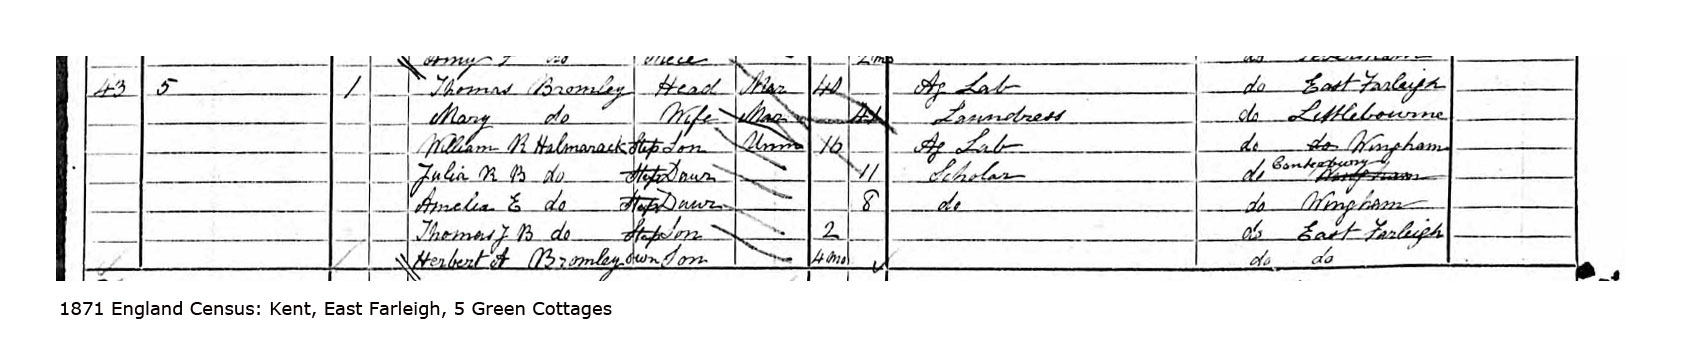 43 5 1 Thomas Bromley Head Mar 40 Ag Lab do East Farleigh
Mary do Wife Mar 41 Laundress do Littlebourne
William R Halmarack Step Son Unm 16 Ag Lab do do Wingham
Julia R B do Step Daur 11 Scholar do Canterbury Wingham
Amelia E do Step Daur 8 do do Wingham
Thomas J B do Step Son 2 do East Farleigh
Herbert A Bromley own Son 4 mo do do
1871 England Census: Kent, East Farleigh, 5 Green Cottages